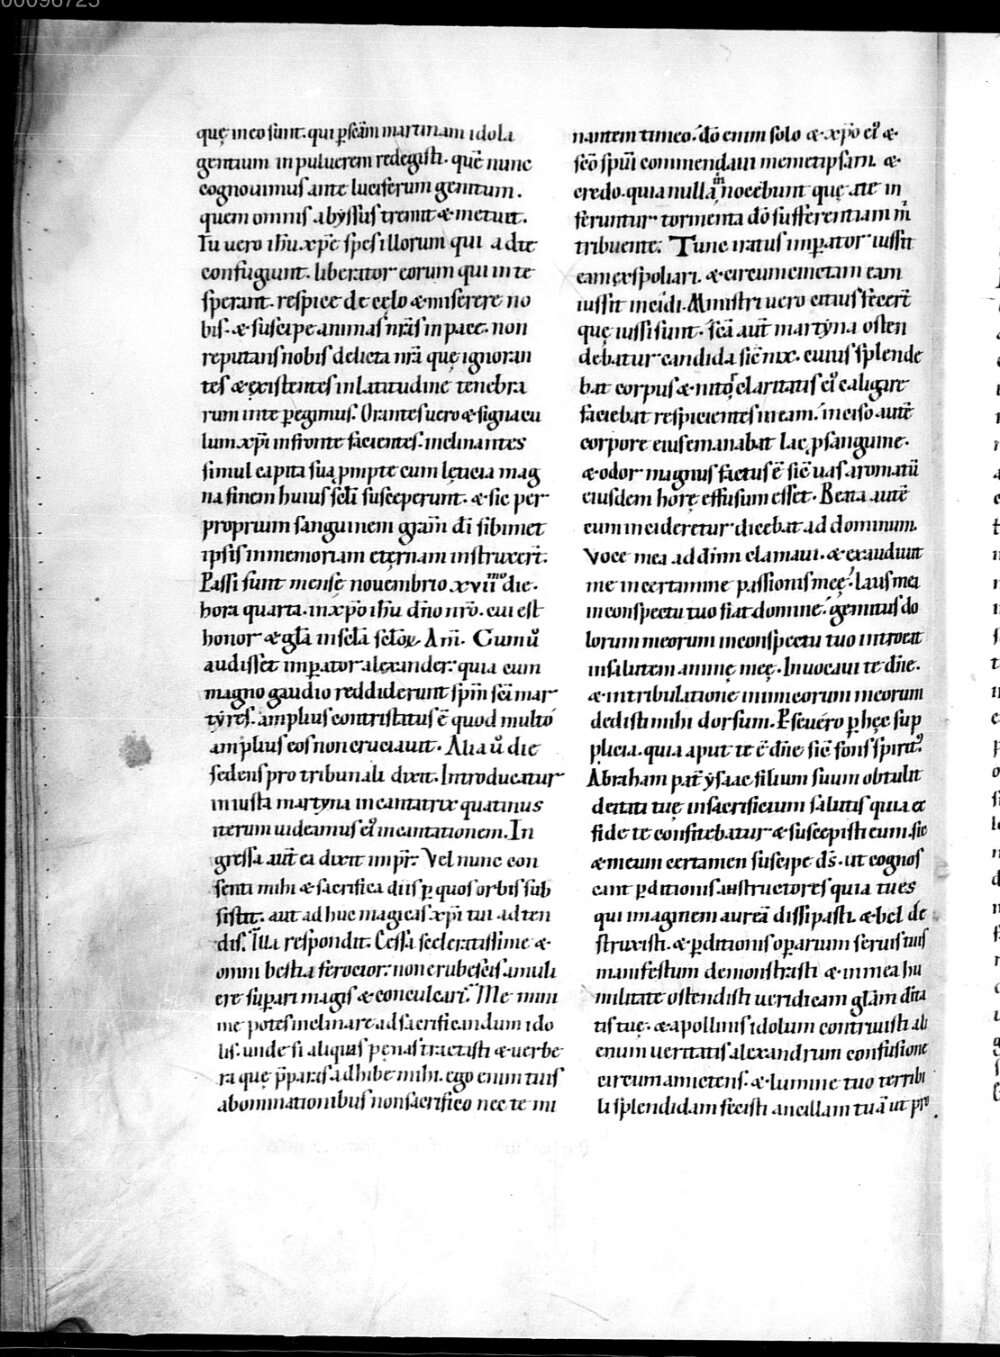 00096725
quę in eo sunt. qui p̱ scām martinam idola
gentium in puluerem redegisti. quē nunc
cognouimus ante luciferum genitum.
quem omnis abyssus tremit & metuit.
Tu uero ihū xp̄e spes illorum qui ad te
confugiunt. liberator eorum qui in te
sperant. respice de cęlo & miserere no
bis. & suscipe animas nr̄as in pace. non
reputans nobis delicta nr̄a quę ignoran
tes & existentes in latitudine tenebra
rum inte p̱egimus. Orantes uero & signacu
lum xp̄i in fronte facientes. inclinantes
simul capita sua p̱mpte cum lęticia mag
na finem huius sc̄li susceperunt. & sic per
proprium sanguinem gr̄am dī sibimet
ipsis in memoriam eternam instruxer̄t.
Passi sunt mense nouembrio xvii mo die.
hora quarta. in xp̄o ihū dn̄o nr̄o. cui est
honor & gl̄a in sc̄la sc̄lo℞. Am̄. Cum ū
audisset imp̱ator alexander: quia cum
magno gaudio reddiderunt sp̄m sc̄i mar
tyres. amplius contristatus ē quod multo
amplius eos non cruciauit. Alia ū die
sedens pro tribunali dixit. Introducatur
iniusta martyna incantatrix quatinus
iterum uideamus ei' incantationem. In
gressa aut̄ ea dixit imp̄r: Vel nunc con
senti mihi & sacrifica diis p̱ quos orbis sub
sistit. aut adhuc magicas xp̄i tui adten
dis. Illa respondit: Cessa sceleratissime &
omni bestia ferocior: non erubescis a muli
ere sup̱ari magis & conculcari. Me nun
me potes inclinare ad sacrificandum ido
lis. unde si aliquas pęnas tractasti & uerbe
ra quę p̄paras adhibe mihi. ego enim tuis
abominationibus non sacrifico nec te mi
nantem timeo. dō enim solo & xp̄o ei' &
scō sp̄ui commendaui memetipsam. &
credo. quia nulla m nocebunt quę a te in
feruntur tormenta dō sufferentiam m̄
tribuente: Tunc iratus imp̱ator iussit
eam exspoliari. & circumcinctam eam
iussit incidi. Ministri uero eius fecer̄t
quę iussi sunt. sc̄a aut̄ martyna osten
debatur candida sic̄ nix. cuius splende
bat corpus & nitor claritatis ei' caligare
faciebat respicientes in eam. in eiso autē
corpore eius emanabat lac p̱ sanguine.
& odor magnus factus ē sic̄ uas aromatū
eiusdem horę effusum esset. Beata autē
cum incideretur dicebat ad dominum.
Voce mea ad dn̄m clamaui. & exaudiuit
me in certamine passionis meę. laus mea
in conspectu tuo fiat domine. gemitus do
lorum meorum in conspectu tuo introeat
in salutem animę meę. Inuocaui te dn̄e.
& in tribulatione inimicorum meorum
dedisti mihi dorsum. P̱seuero p̱ hęc sup
plicia. quia aput te ē dn̄e sic̄ fons spirit'.
Abraham pat̄ ysaac filium suum obtulit
deitati tuę in sacrificium salutis quia ex
fide te confitebatur & suscepisti eum. sic
& meum certamen suscipe ds̄. ut cognos
cant p̱ditionis instructores quia tu es
qui imaginem aureā dissipasti. & bel de
struxisti. & p̱ditionis op̱arium seruis tuis
manifestum demonstrasti & in mea hu
militate ostendisti ueridicam gl̄am d̄ita
tis tuę. & apollinis idolum contriuisti ali
enum ueritatis alexandrum confusione
circumamictens. & lumine tuo terribi
li splendidam fecisti ancillam tuā ut pro